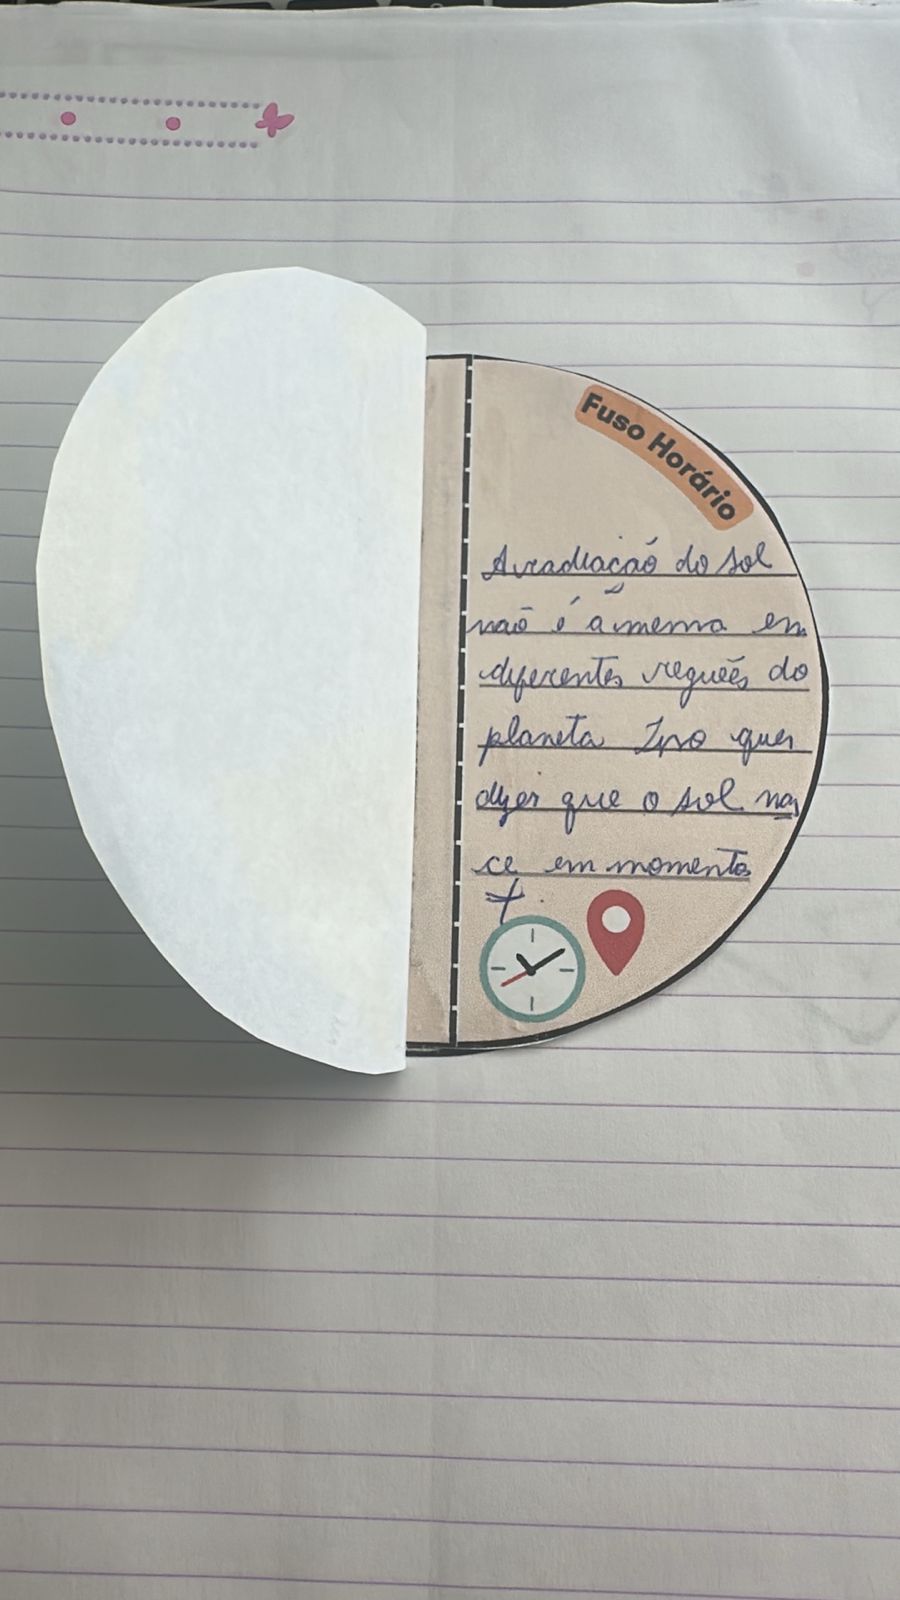 Fuso Horário
A radiação do sol
não é a mesma em
diferentes regueẽs do
planeta Isso quer
dizer que o sol nas
ce em momentos
+